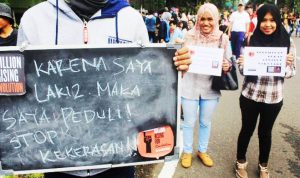 BILLION
RISING
REVOLUTION
KARENA SAYA
LAKI2. MAKA
SAYA PEDULI!
STOP
KEKERASAN!!